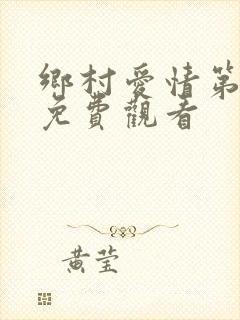 鄉村愛情第
免費觀看
黃莹